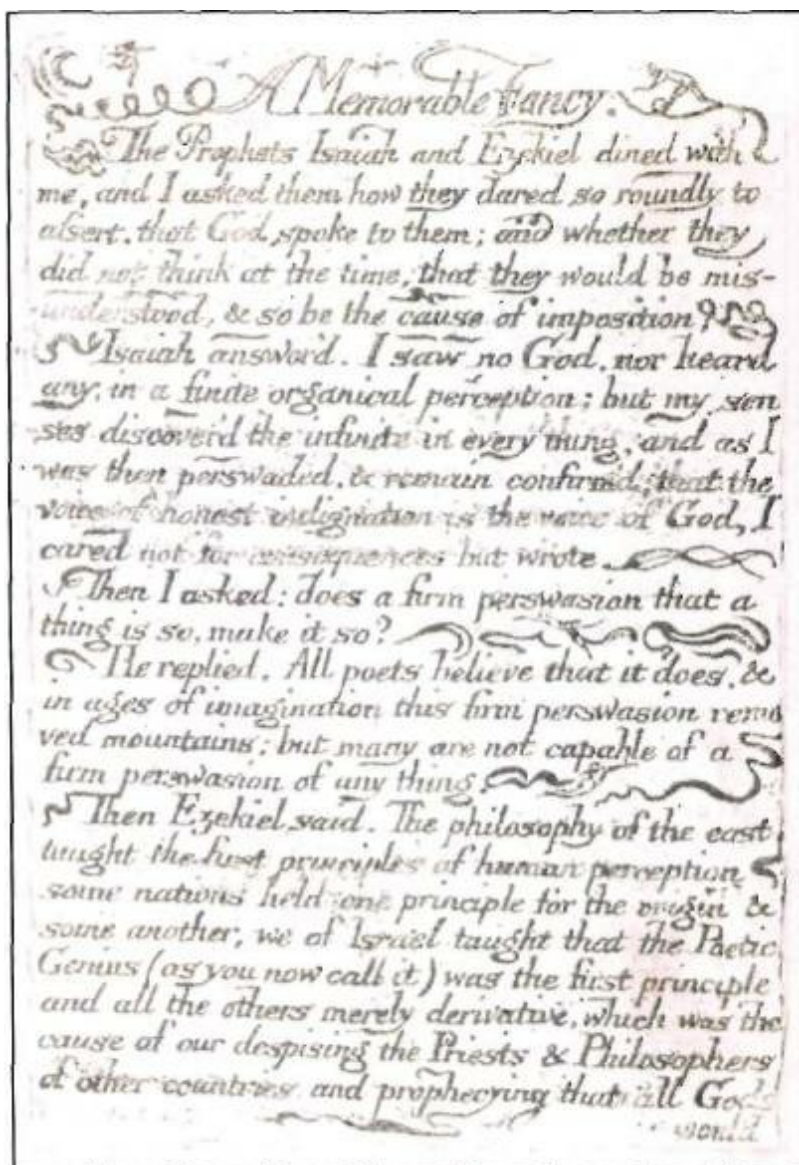 A Memorable Fancy.
The Prophets Isaiah and Ezekiel dined with
me, and I asked them how they dared so roundly to
assert. that God spoke to them; and whether they
did not think at the time, that they would be mis-
understood, & so be the cause of imposition?
Isaiah answerd. I saw no God. nor heard
any, in a finite organical perception; but my sen
ses discoverd the infinite in every thing, and as I
was then perswaded. & remain confirmed; that the
voice of honest indignation is the voice of God, I
cared not for consequences but wrote.
Then I asked: does a firm perswasion that a
thing is so, make it so?
He replied. All poets believe that it does. &
in ages of imagination this firm perswasion remo
ved mountains; but many are not capable of a
firm perswasion of any thing.
Then Ezekiel said. The philosophy of the east
taught the first principles of human perception
some nations held one principle for the origin &
some another, we of Israel taught that the Poetic
Genius (as you now call it) was the first principle
and all the others merely derivative, which was the
cause of our despising the Priests & Philosophers
of other countries, and prophecying that all Gods
would